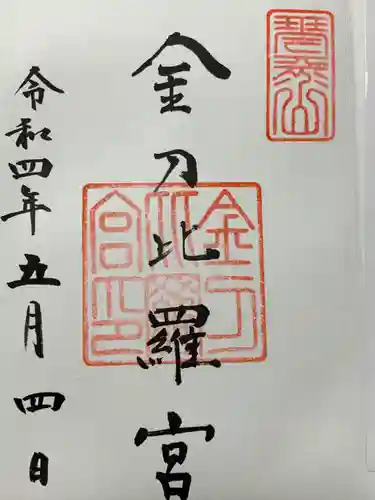 琴平山
金刀比羅宮
金刀比羅宮印
令和四年五月四日